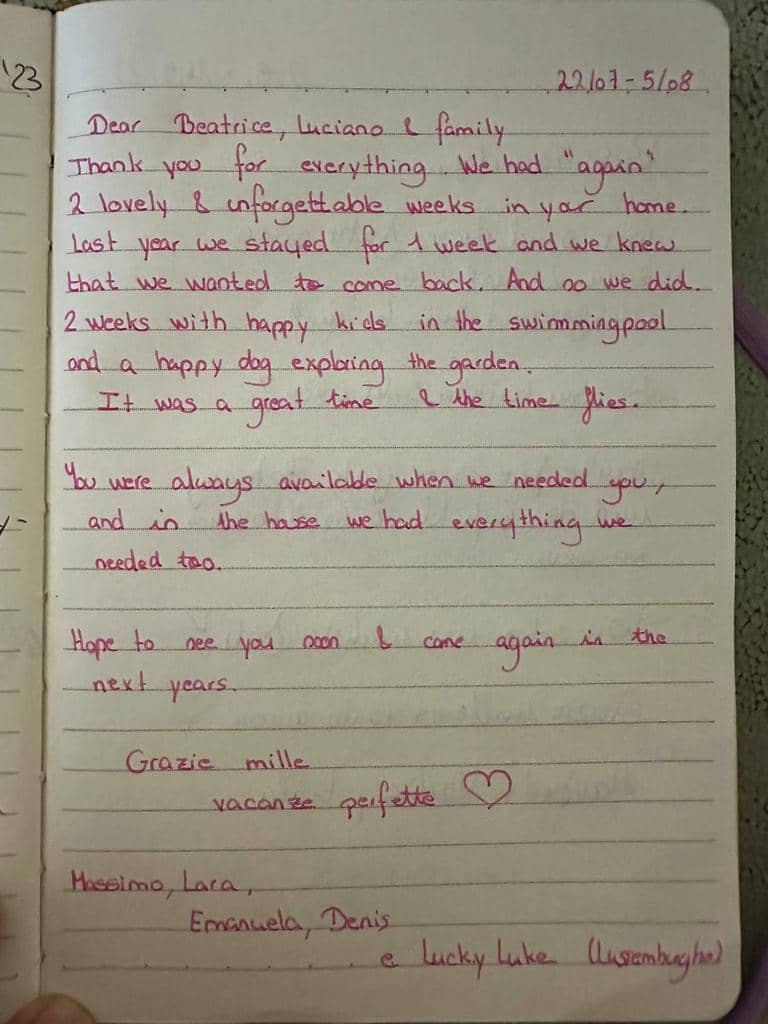 '23
22/07 - 5/08
Dear Beatrice, Luciano & family
Thank you for everything. We had "again"
2 lovely & unforgettable weeks in your home.
Last year we stayed for 1 week and we knew
that we wanted to come back. And so we did.
2 weeks with happy kids in the swimmingpool
and a happy dog exploring the garden.
It was a great time & the time flies.
You were always available when we needed you,
and in the house we had everything we
needed too.
Hope to see you soon & come again in the
next years.
Grazie mille
vacanze perfette ♡
Massimo, Lara,
Emanuela, Denis
e Lucky Luke